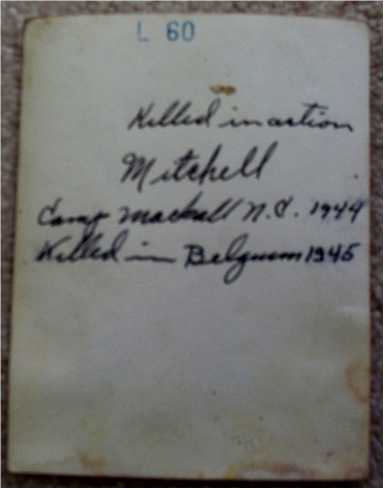 L 60
Killed in action
Mitchell
Camp Mackall N.C. 1944
Killed in Belguem 1945